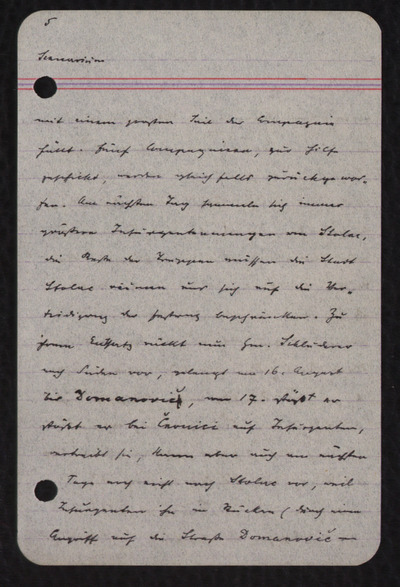 5
Scenarium
mit einem großen Teil der Compagnie
fällt. Fünf Compagnieen, zur Hilfe
geschickt, werden gleichfalls zurückgewor-
fen. Am nächsten Tag sammeln sich immer
größere Insurgentenmengen um Stolac,
die Reste der Truppen müssen die Stadt
Stolac räumen und sich auf die Ver-
teidigung der Festung beschränken. Zu
ihrem Entsatz rückt nun Gm. Schluderer
nach Süden vor, gelangt am 16. August
bis Domanović, am 17. stößt er
stößt er bei Crnici auf Insurgenten,
vertreibt sie, kann aber auch am nächsten
Tage noch nicht nach Stolac vor, weil
Insurgenten ihn im Rücken (durch einen
Angriff auf die Straße Domanović —